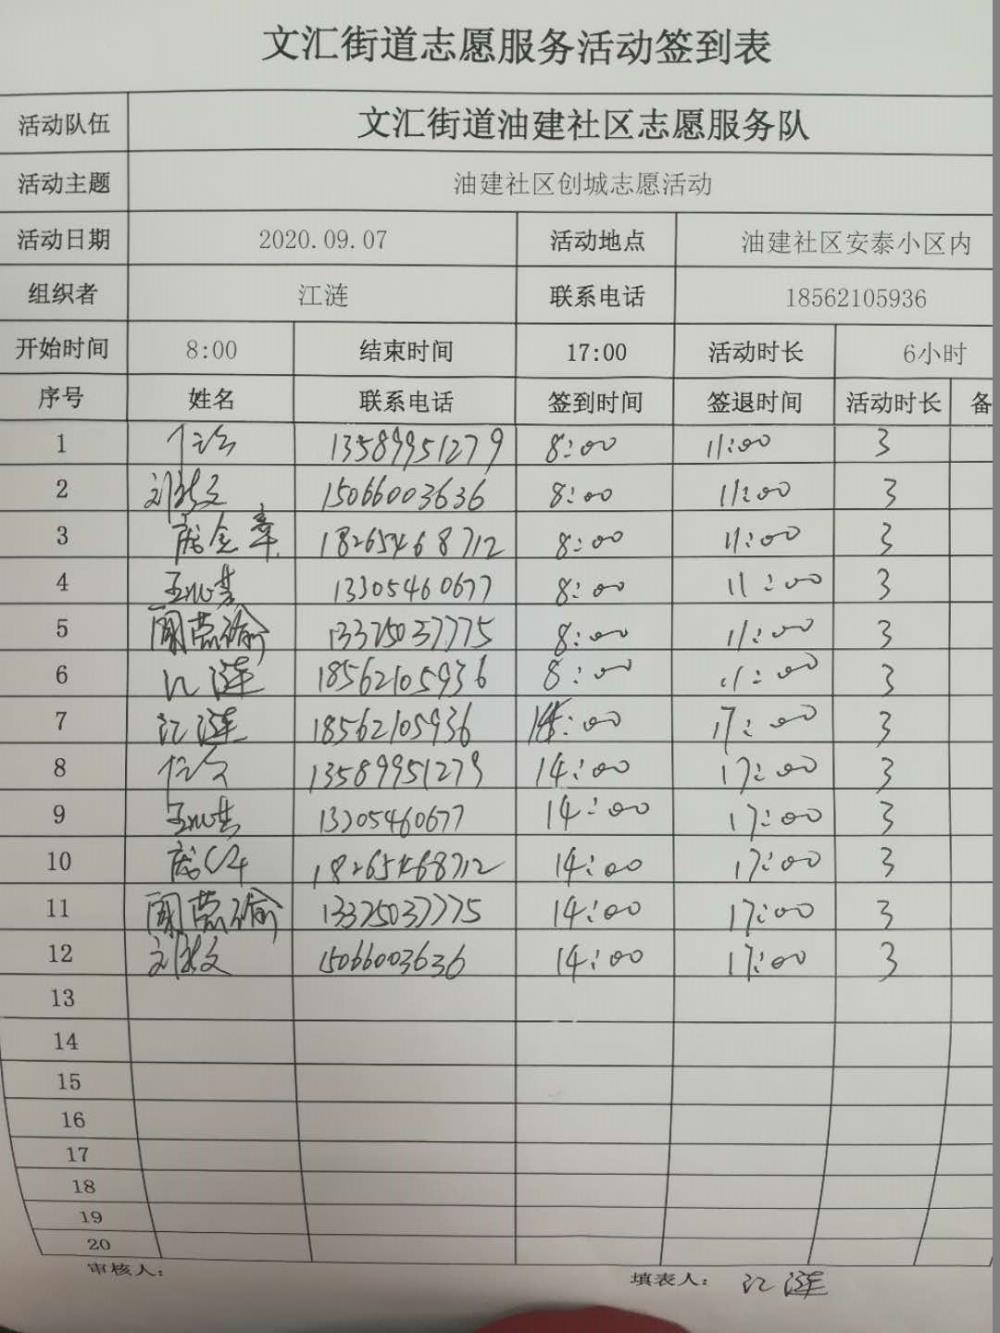 文汇街道志愿服务活动签到表
活动队伍 文汇街道油建社区志愿服务队
活动主题 油建社区创城志愿活动
活动日期 2020.09.07 活动地点 油建社区安泰小区内
组织者 江涟 联系电话 18562105936
开始时间 8:00 结束时间 17:00 活动时长 6小时
序号 姓名 联系电话 签到时间 签退时间 活动时长 备
1 13589951279 8:00 11:00 3
2 15066003636 8:00 11:00 3
3 18265468712 8:00 11:00 3
4 13305460677 8:00 11:00 3
5 13325037775 8:00 11:00 3
6 江涟 18562105936 8:00 11:00 3
7 江涟 18562105936 14:00 17:00 3
8 13589951279 14:00 17:00 3
9 13205460677 14:00 17:00 3
10 18265468712 14:00 17:00 3
11 13325037775 14:00 17:00 3
12 15066003636 14:00 17:00 3
13
14
15
16
17
18
19
20
审核人: 填表人: 江涟